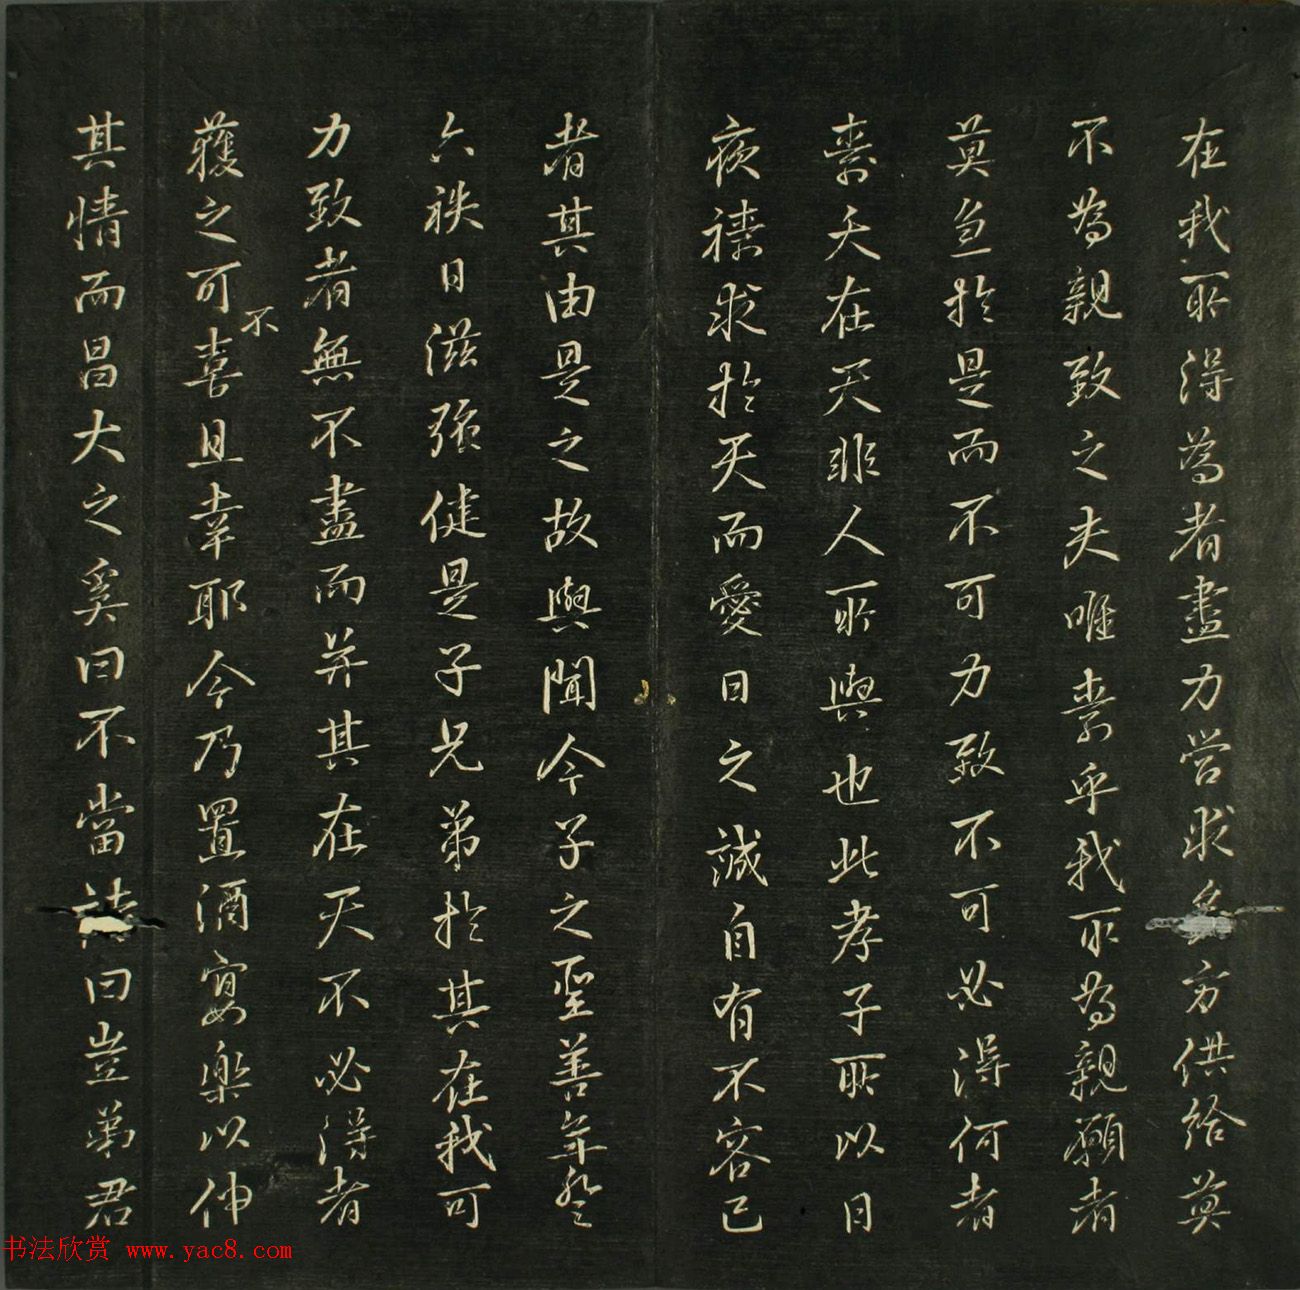 在我所得為者盡力營求多方供給莫
不為親致之夫唯壽乎我所為親願者
莫急於是而不可力致不可必得何者
壽夭在天非人所與也此孝子所以日
夜禱求於天而愛日之誠自有不容已
者其由是之故與聞今子之聖善年登
六袟日滋強健是子兄弟於其在我可
力致者無不盡而并其在天不必得者
獲之可不喜且幸耶今乃置酒宴樂以伸
其情而昌大之奚曰不當詩曰豈弟君
书法欣赏 www.yac8.com